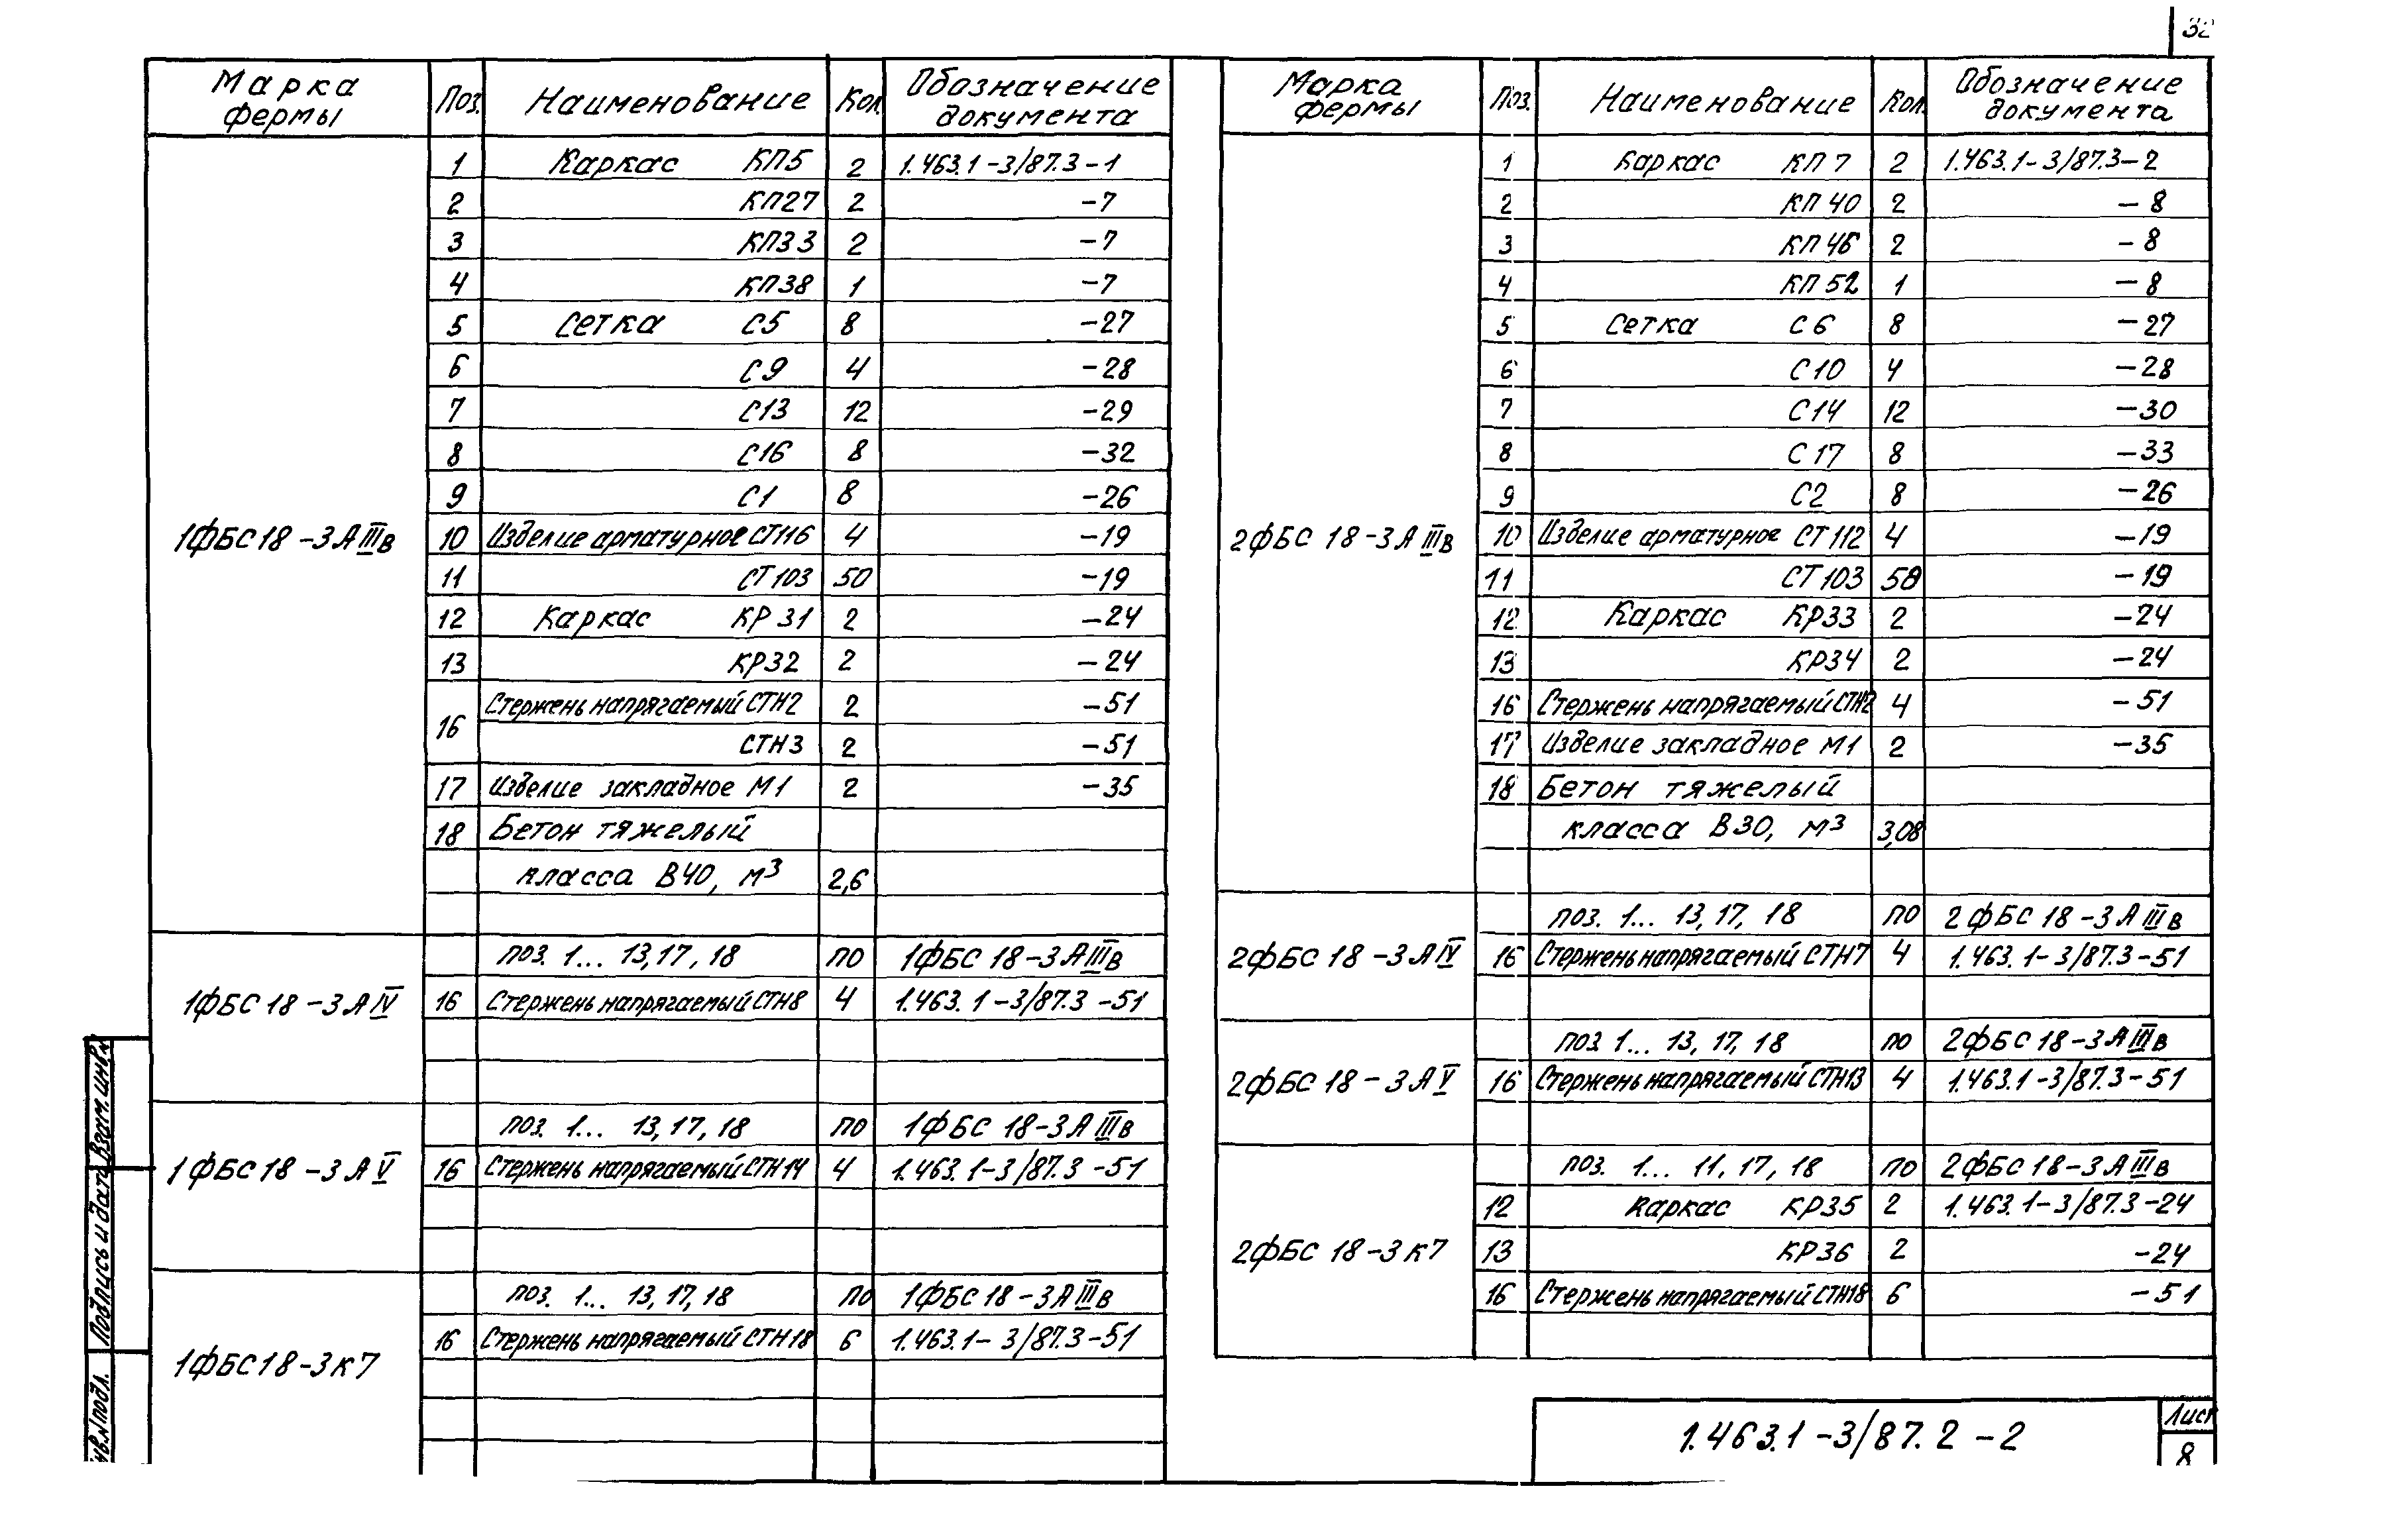 32
Марка фермы Поз. Наименование Кол. Обозначение документа
1 Каркас КП5 2 1.463.1-3/87.3-1
2 КП27 2 -7
3 КП33 2 -7
4 КП38 1 -7
5 Сетка С5 8 -27
6 С9 4 -28
7 С13 12 -29
8 С16 8 -32
9 С1 8 -26
1ФБС18-3АIIIв 10 Изделие арматурное СТ116 4 -19
11 СТ103 50 -19
12 Каркас КР31 2 -24
13 КР32 2 -24
16 Стержень напрягаемый СТН2 2 -51
СТН3 2 -51
17 Изделие закладное М1 2 -35
18 Бетон тяжелый
класса В40, м³ 2,6
поз. 1... 13, 17, 18 по 1ФБС18-3АIIIв
1ФБС18-3АIV 16 Стержень напрягаемый СТН8 4 1.463.1-3/87.3-51
поз. 1... 13, 17, 18 по 1ФБС18-3АIIIв
1ФБС18-3АV 16 Стержень напрягаемый СТН14 4 1.463.1-3/87.3-51
поз. 1... 13, 17, 18 по 1ФБС18-3АIIIв
16 Стержень напрягаемый СТН18 6 1.463.1-3/87.3-51
1ФБС18-3К7
Марка фермы Поз. Наименование Кол. Обозначение документа
1 Каркас КП7 2 1.463.1-3/87.3-2
2 КП40 2 -8
3 КП46 2 -8
4 КП52 1 -8
5 Сетка С6 8 -27
6 С10 4 -28
7 С14 12 -30
8 С17 8 -33
9 С2 8 -26
2ФБС18-3АIIIв 10 Изделие арматурное СТ112 4 -19
11 СТ103 58 -19
12 Каркас КР33 2 -24
13 КР34 2 -24
16 Стержень напрягаемый СТН2 4 -51
17 Изделие закладное М1 2 -35
18 Бетон тяжелый
класса В30, м³ 3,08
поз. 1... 13, 17, 18 по 2ФБС18-3АIIIв
2ФБС18-3АIV 16 Стержень напрягаемый СТН7 4 1.463.1-3/87.3-51
поз. 1... 13, 17, 18 по 2ФБС18-3АIIIв
2ФБС18-3АV 16 Стержень напрягаемый СТН13 4 1.463.1-3/87.3-51
поз. 1... 11, 17, 18 по 2ФБС18-3АIIIв
12 Каркас КР35 2 1.463.1-3/87.3-24
2ФБС18-3К7 13 КР36 2 -24
16 Стержень напрягаемый СТН18 6 -51
1.463.1-3/87.2-2
Лист
8
Взам. инв.№
Подпись и дата
Инв.№ подл.